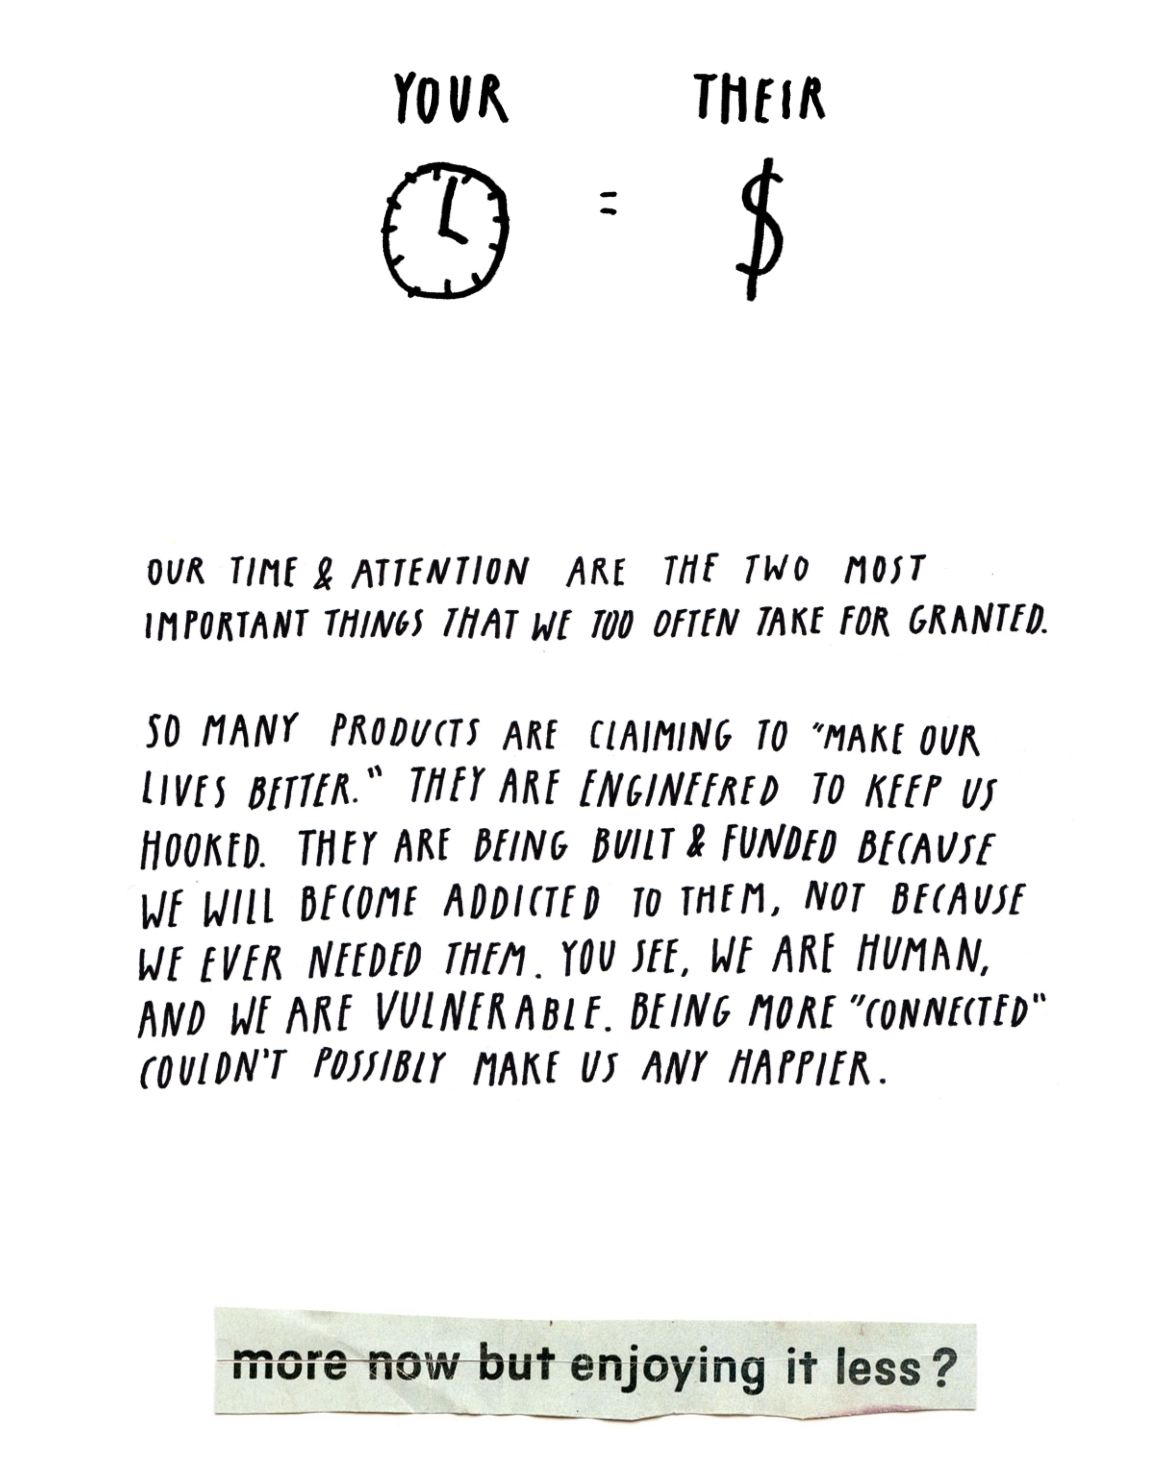 YOUR THEIR
= $
OUR TIME & ATTENTION ARE THE TWO MOST
IMPORTANT THINGS THAT WE TOO OFTEN TAKE FOR GRANTED.
SO MANY PRODUCTS ARE CLAIMING TO "MAKE OUR
LIVES BETTER." THEY ARE ENGINEERED TO KEEP US
HOOKED. THEY ARE BEING BUILT & FUNDED BECAUSE
WE WILL BECOME ADDICTED TO THEM, NOT BECAUSE
WE EVER NEEDED THEM. YOU SEE, WE ARE HUMAN,
AND WE ARE VULNERABLE. BEING MORE "CONNECTED"
COULDN'T POSSIBLY MAKE US ANY HAPPIER.
more now but enjoying it less?